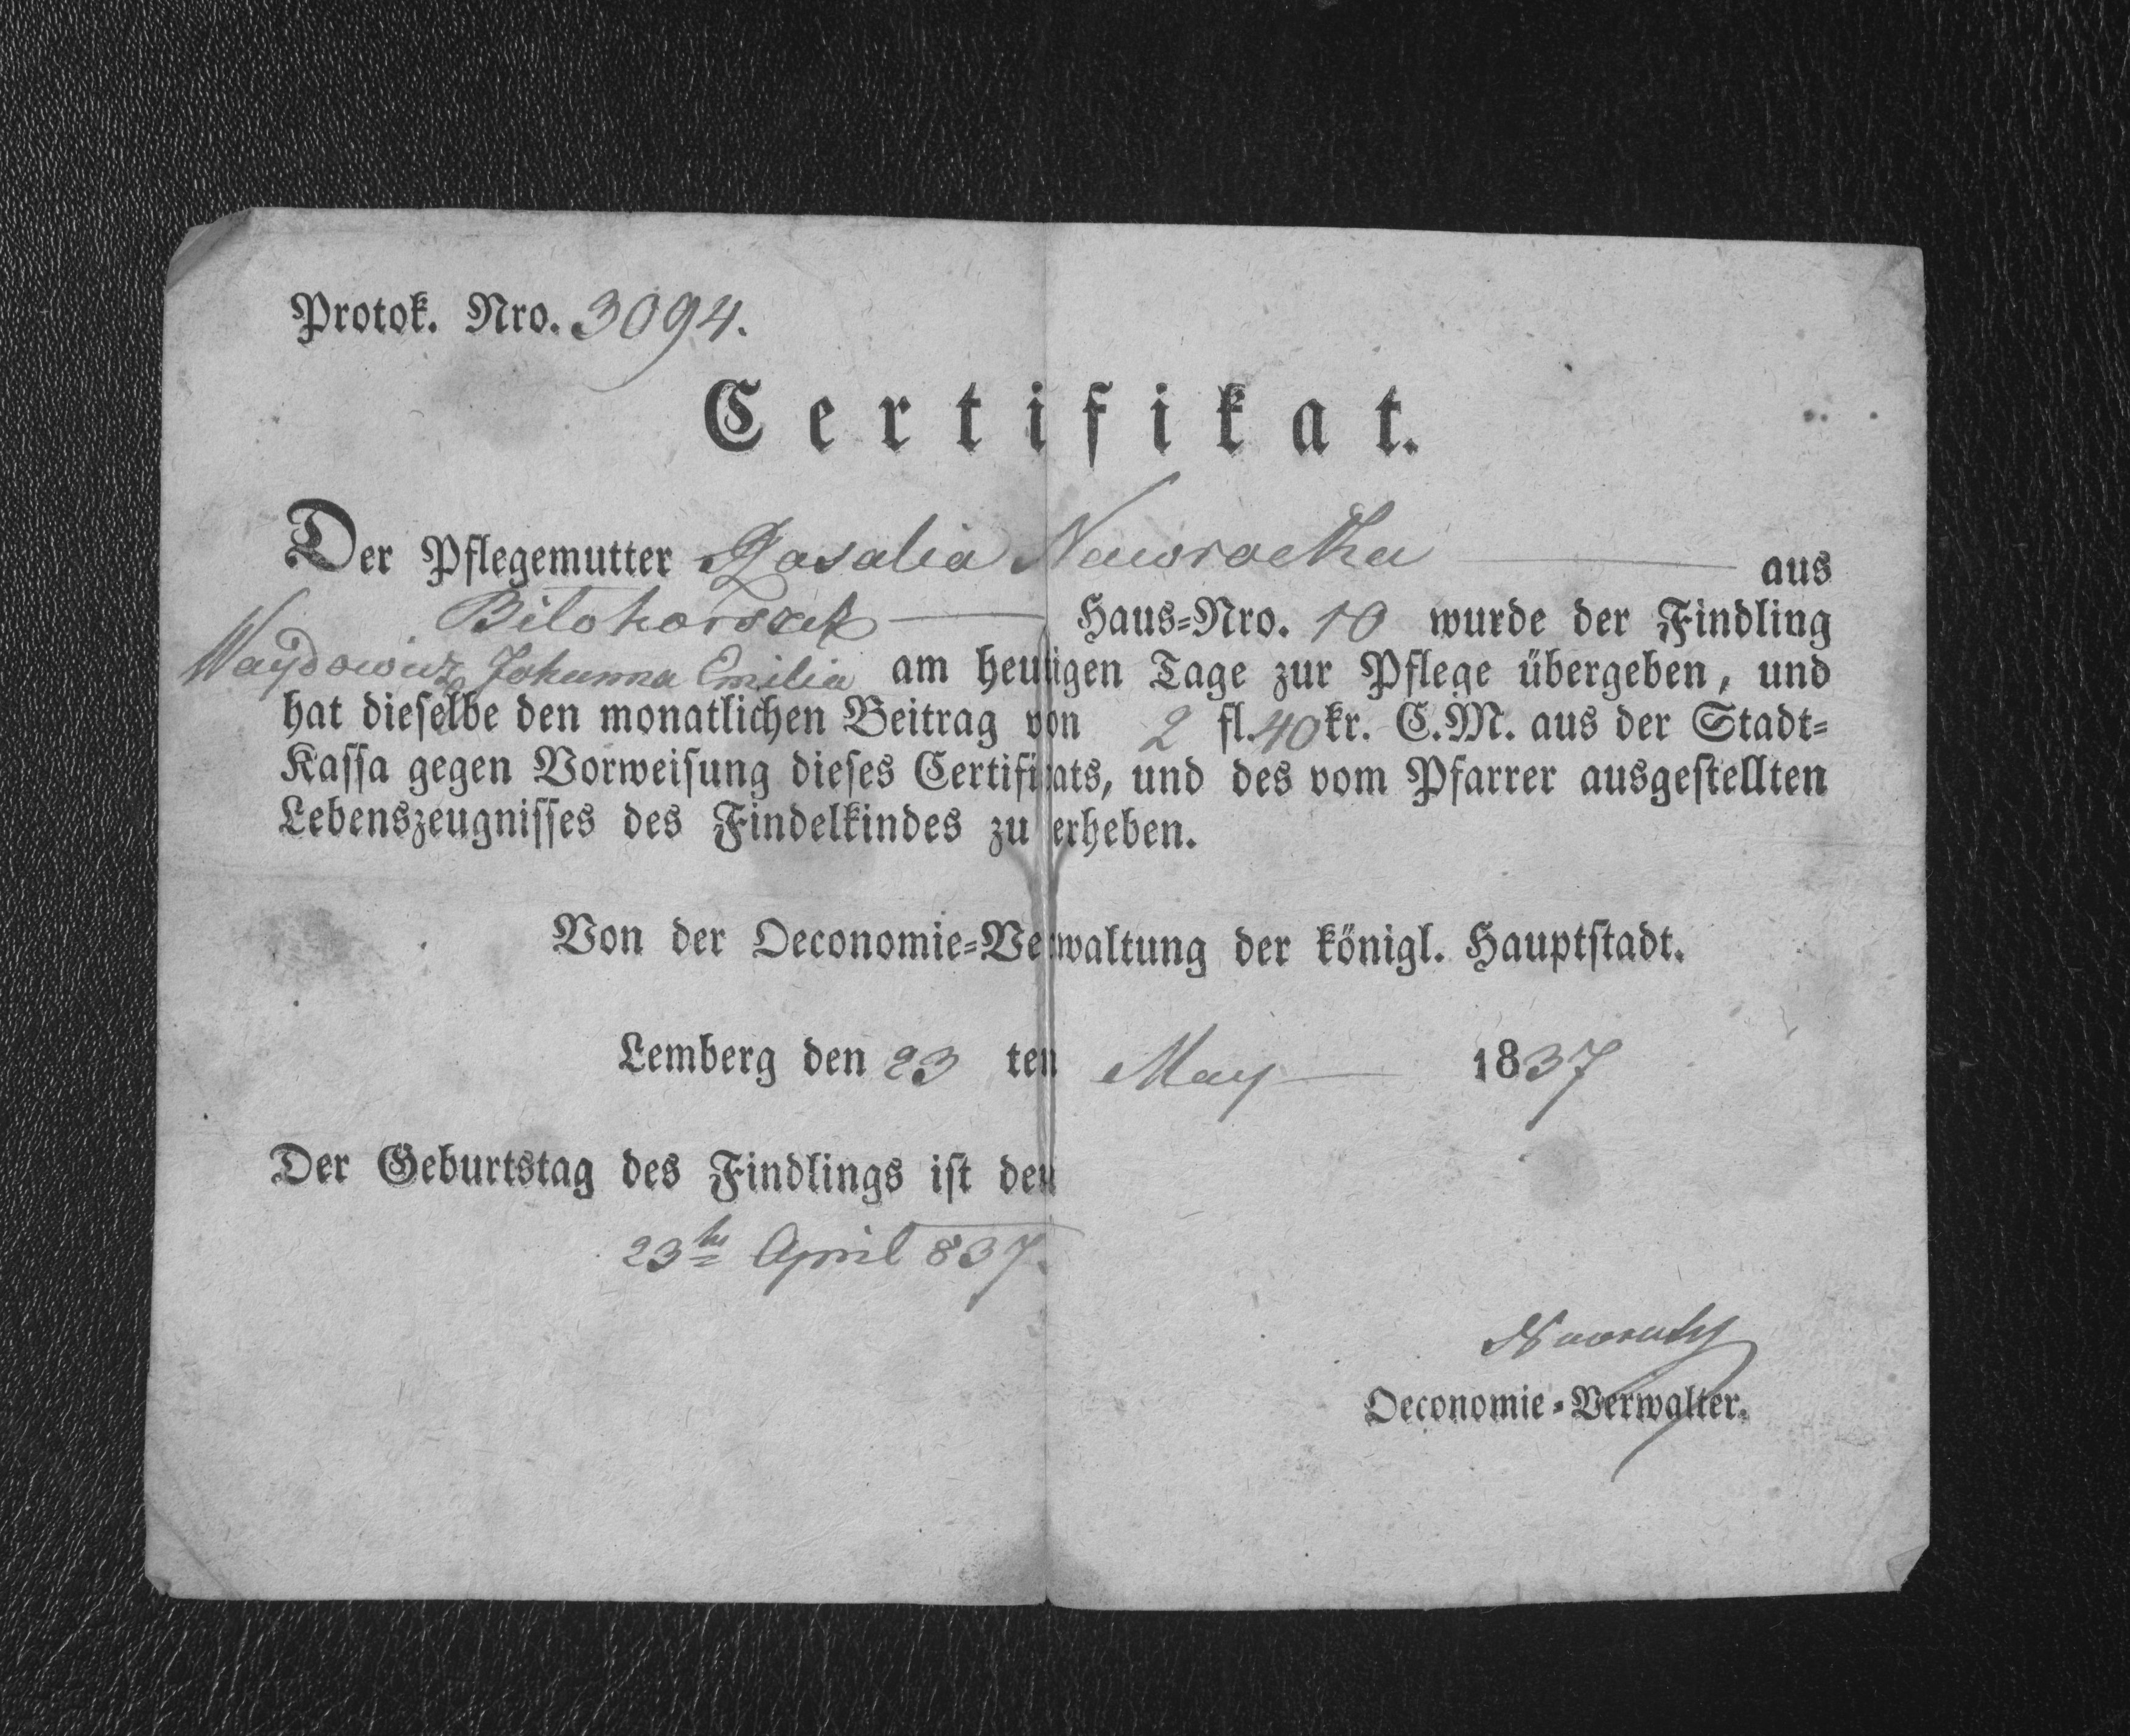 Protok. Nro. 3094.
Certifikat.
Der Pflegemutter Rosalia Nawrocka aus
Bilohorszek Haus-Nro. 10 wurde der Findling
Waydowicz Johanna Emilia am heutigen Tage zur Pflege übergeben, und
hat dieselbe den monatlichen Beitrag von 2 fl. 40 kr. C.M. aus der Stadt-
Kassa gegen Vorweisung dieses Certifikats, und des vom Pfarrer ausgestellten
Lebenszeugnisses des Findelkindes zu erheben.
Von der Oeconomie-Verwaltung der königl. Hauptstadt.
Lemberg den 23 ten May 1837
Der Geburtstag des Findlings ist den
23ten April 837.
Oeconomie-Verwalter.